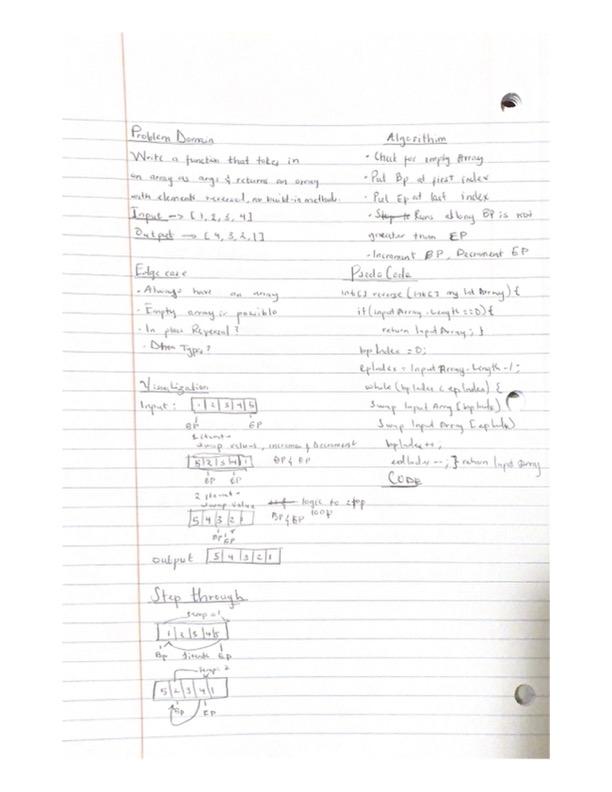 Problem Domain
Write a function that takes in
an array as args & returns an array
with elements reversed, no build-in methods.
Input -> [1, 2, 3, 4]
Output -> [4, 3, 2, 1]
Edge case
- Always have an array
- Empty array is possible
- In place Reversal?
- Other Types?
Visualization
Input: 1 2 3 4 5
BP EP
swap values, increment & Decrement
5 2 3 4 1 BP & EP
BP EP
2
swap value logic to stop
5 4 3 2 1 BP & EP loop
BP EP
output 5 4 3 2 1
Step through
swap = 1
1 2 3 4 5
BP EP
swap = 2
5 2 3 4 1
BP EP
Algorithim
- Check for empty Array
- Put Bp at first index
- Put Ep at last index
- Runs BP is not
greater than EP
- Increment BP, Decrement EP
Psedo Code
int[] reverse (int[] Array) {
if (input Array.Length == 0) {
return Input Array; }
bpIndex = 0;
epIndex = Input Array.Length - 1;
while (bpIndex < epIndex) {
Swap Input Array [bpIndex]
Swap Input Array [epIndex]
bpIndex++;
--; } return Input Array
CODE